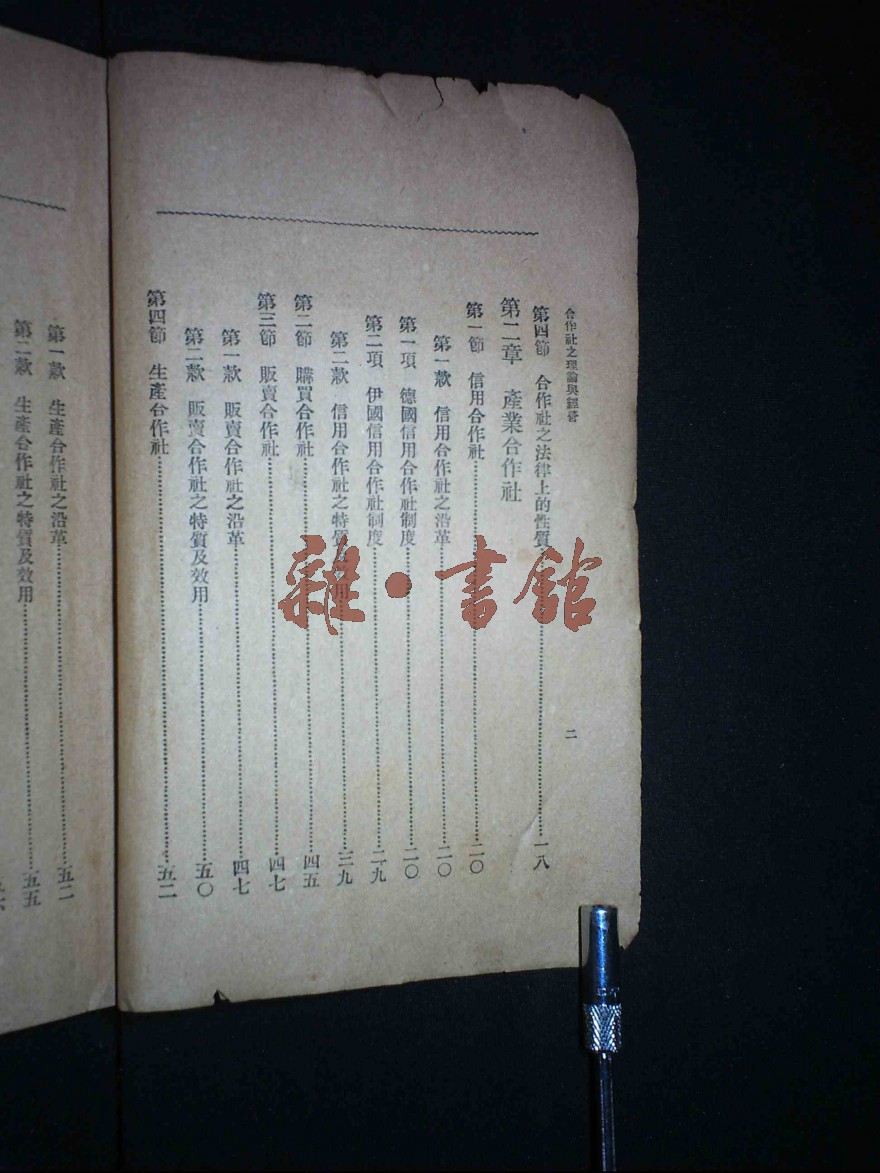 合作社之理論與經營
二
第四節 合作社之法律上的性質 一八
第二章 產業合作社
第一節 信用合作社 二〇
第一款 信用合作社之沿革 二〇
第一項 德國信用合作社制度 二〇
第二項 伊國信用合作社制度 二九
第二款 信用合作社之特質及效用 三九
第二節 購買合作社 四五
第三節 販賣合作社 四七
第一款 販賣合作社之沿革 四七
第二款 販賣合作社之特質及效用 五〇
第四節 生產合作社 五二
第一款 生產合作社之沿革 五二
第二款 生產合作社之特質及效用 五五
雜·書館